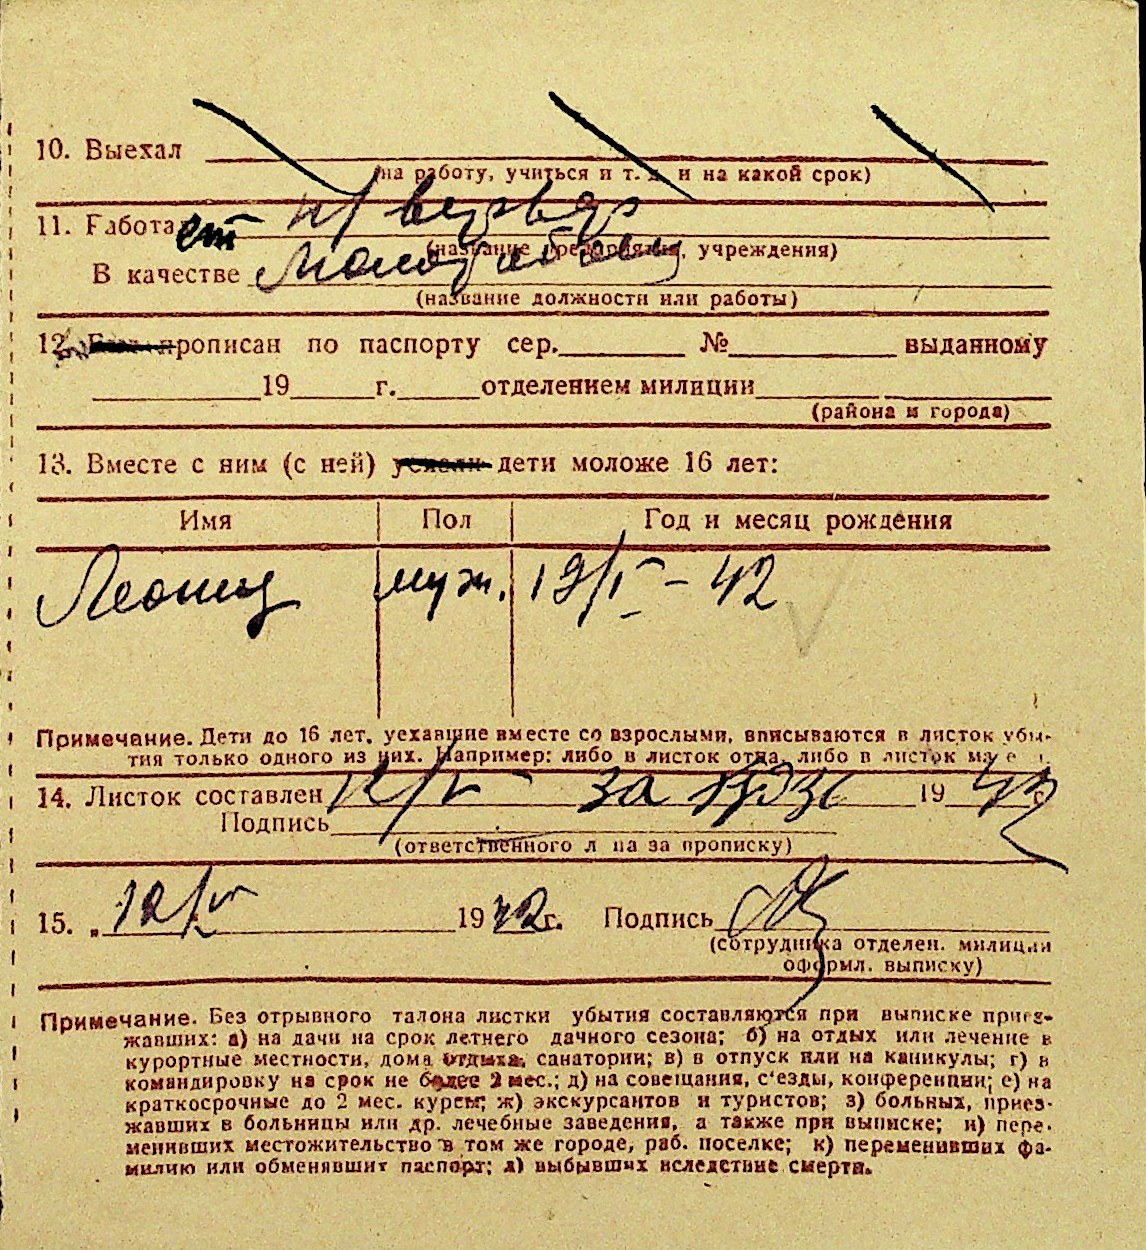 10. Выехал
(на работу, учиться и т. д. и на какой срок)
11. Работает
(название предприятия, учреждения)
В качестве
(название должности или работы)
12. прописан по паспорту сер. № выданному
19 г. отделением милиции
(района и города)
13. Вместе с ним (с ней) уехали дети моложе 16 лет:
Имя Пол Год и месяц рождения
Леонид муж. 19/V - 42
Примечание. Дети до 16 лет, уехавшие вместе со взрослыми, вписываются в листок убы-
тия только одного из них. Например: либо в листок отца, либо в листок матери.
14. Листок составлен 12/V за 19 43 г.
Подпись
(ответственного лица за прописку)
15. „ 12/V 19 42 г. Подпись
(сотрудника отделен. милиции
оформл. выписку)
Примечание. Без отрывного талона листки убытия составляются при выписке приез-
жавших: а) на дачи на срок летнего дачного сезона; б) на отдых или лечение в
курортные местности, дома отдыха, санатории; в) в отпуск или на каникулы; г) в
командировку на срок не более 2 мес.; д) на совещания, с'езды, конференции; е) на
краткосрочные до 2 мес. курсы; ж) экскурсантов и туристов; з) больных, приез-
жавших в больницы или др. лечебные заведения, а также при выписке; и) пере-
менивших местожительство в том же городе, раб. поселке; к) переменивших фа-
милию или обменявшит паспорт; л) выбывших вследствие смерти.